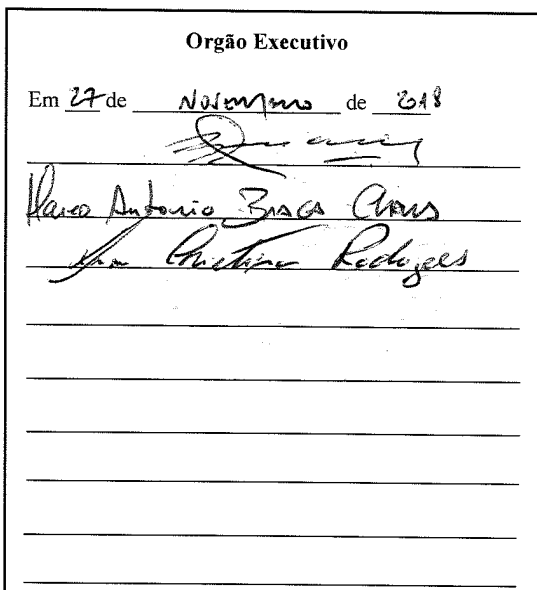 Orgão Executivo
Em 27 de Novembro de 2018
Marco Antonio Braga
Ana Cristina Rodrigues